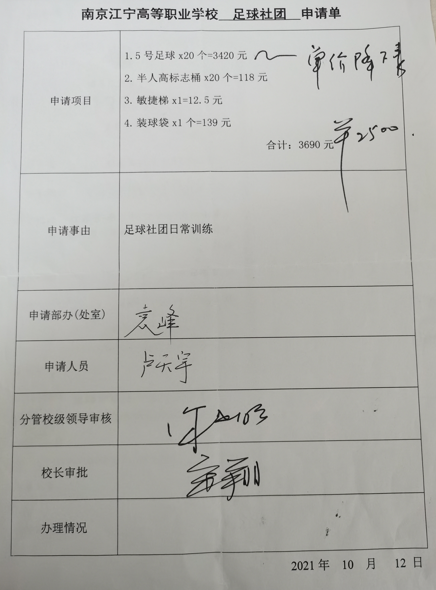 南京江宁高等职业学校 足球社团 申请单
申请项目
1.5 号足球 x20 个=3420 元
单价降下来
2. 半人高标志桶 x20 个=118 元
3. 敏捷梯 x1=12.5 元
4. 装球袋 x1 个=139 元
合计：3690 元
￥2500.
申请事由
足球社团日常训练
申请部办(处室)
袁峰
申请人员
卢天宇
分管校级领导审核
校长审批
办理情况
2021 年 10 月 12 日